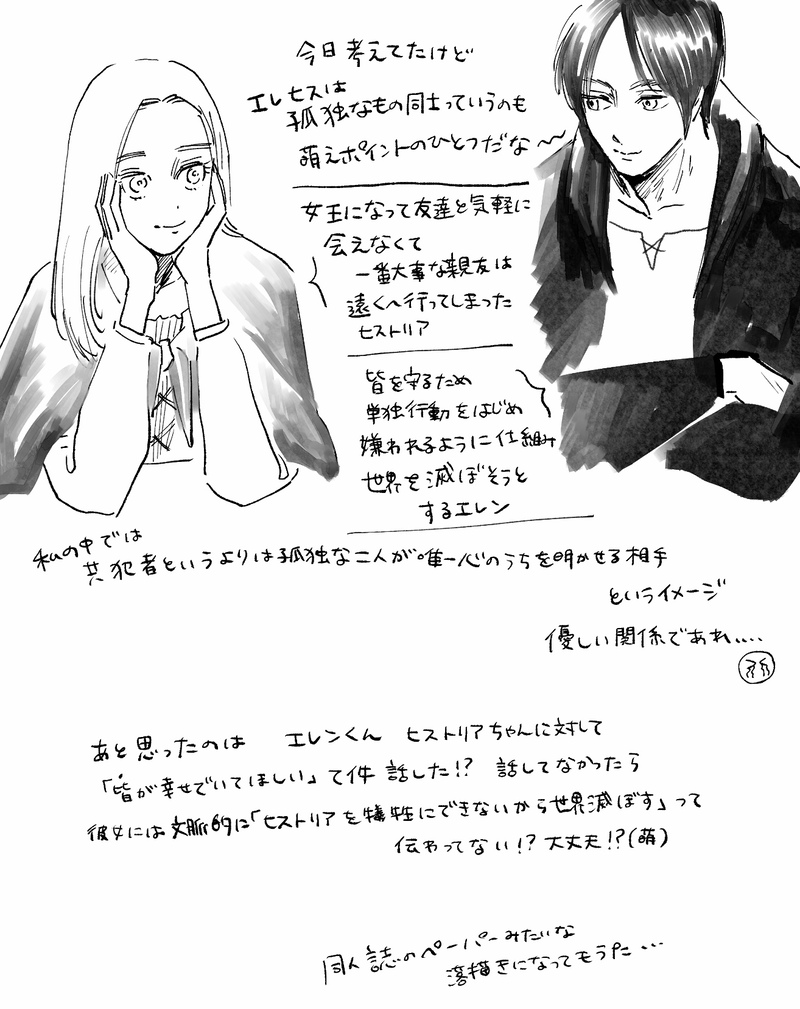 今日考えてたけど
エレヒスは
孤独なもの同士っていうのも
萌えポイントのひとつだな〜〜
女王になって友達と気軽に
会えなくて
一番大事な親友は
遠くへ行ってしまった
ヒストリア
皆を守るため
単独行動をはじめ
嫌われるように仕組み
世界を滅ぼそうと
するエレン
私の中では
共犯者というよりは孤独な二人が唯一心のうちを明かせる相手
というイメージ
優しい関係であれ‥‥
あと思ったのは エレンくん ヒストリアちゃんに対して
「皆が幸せでいてほしい」て件 話した!? 話してなかったら
彼女には文脈的に「ヒストリアを犠牲にできないから世界滅ぼす」って
伝わってない!? 大丈夫!?(萌)
同人誌のペーパーみたいな
落描きになってもうた…